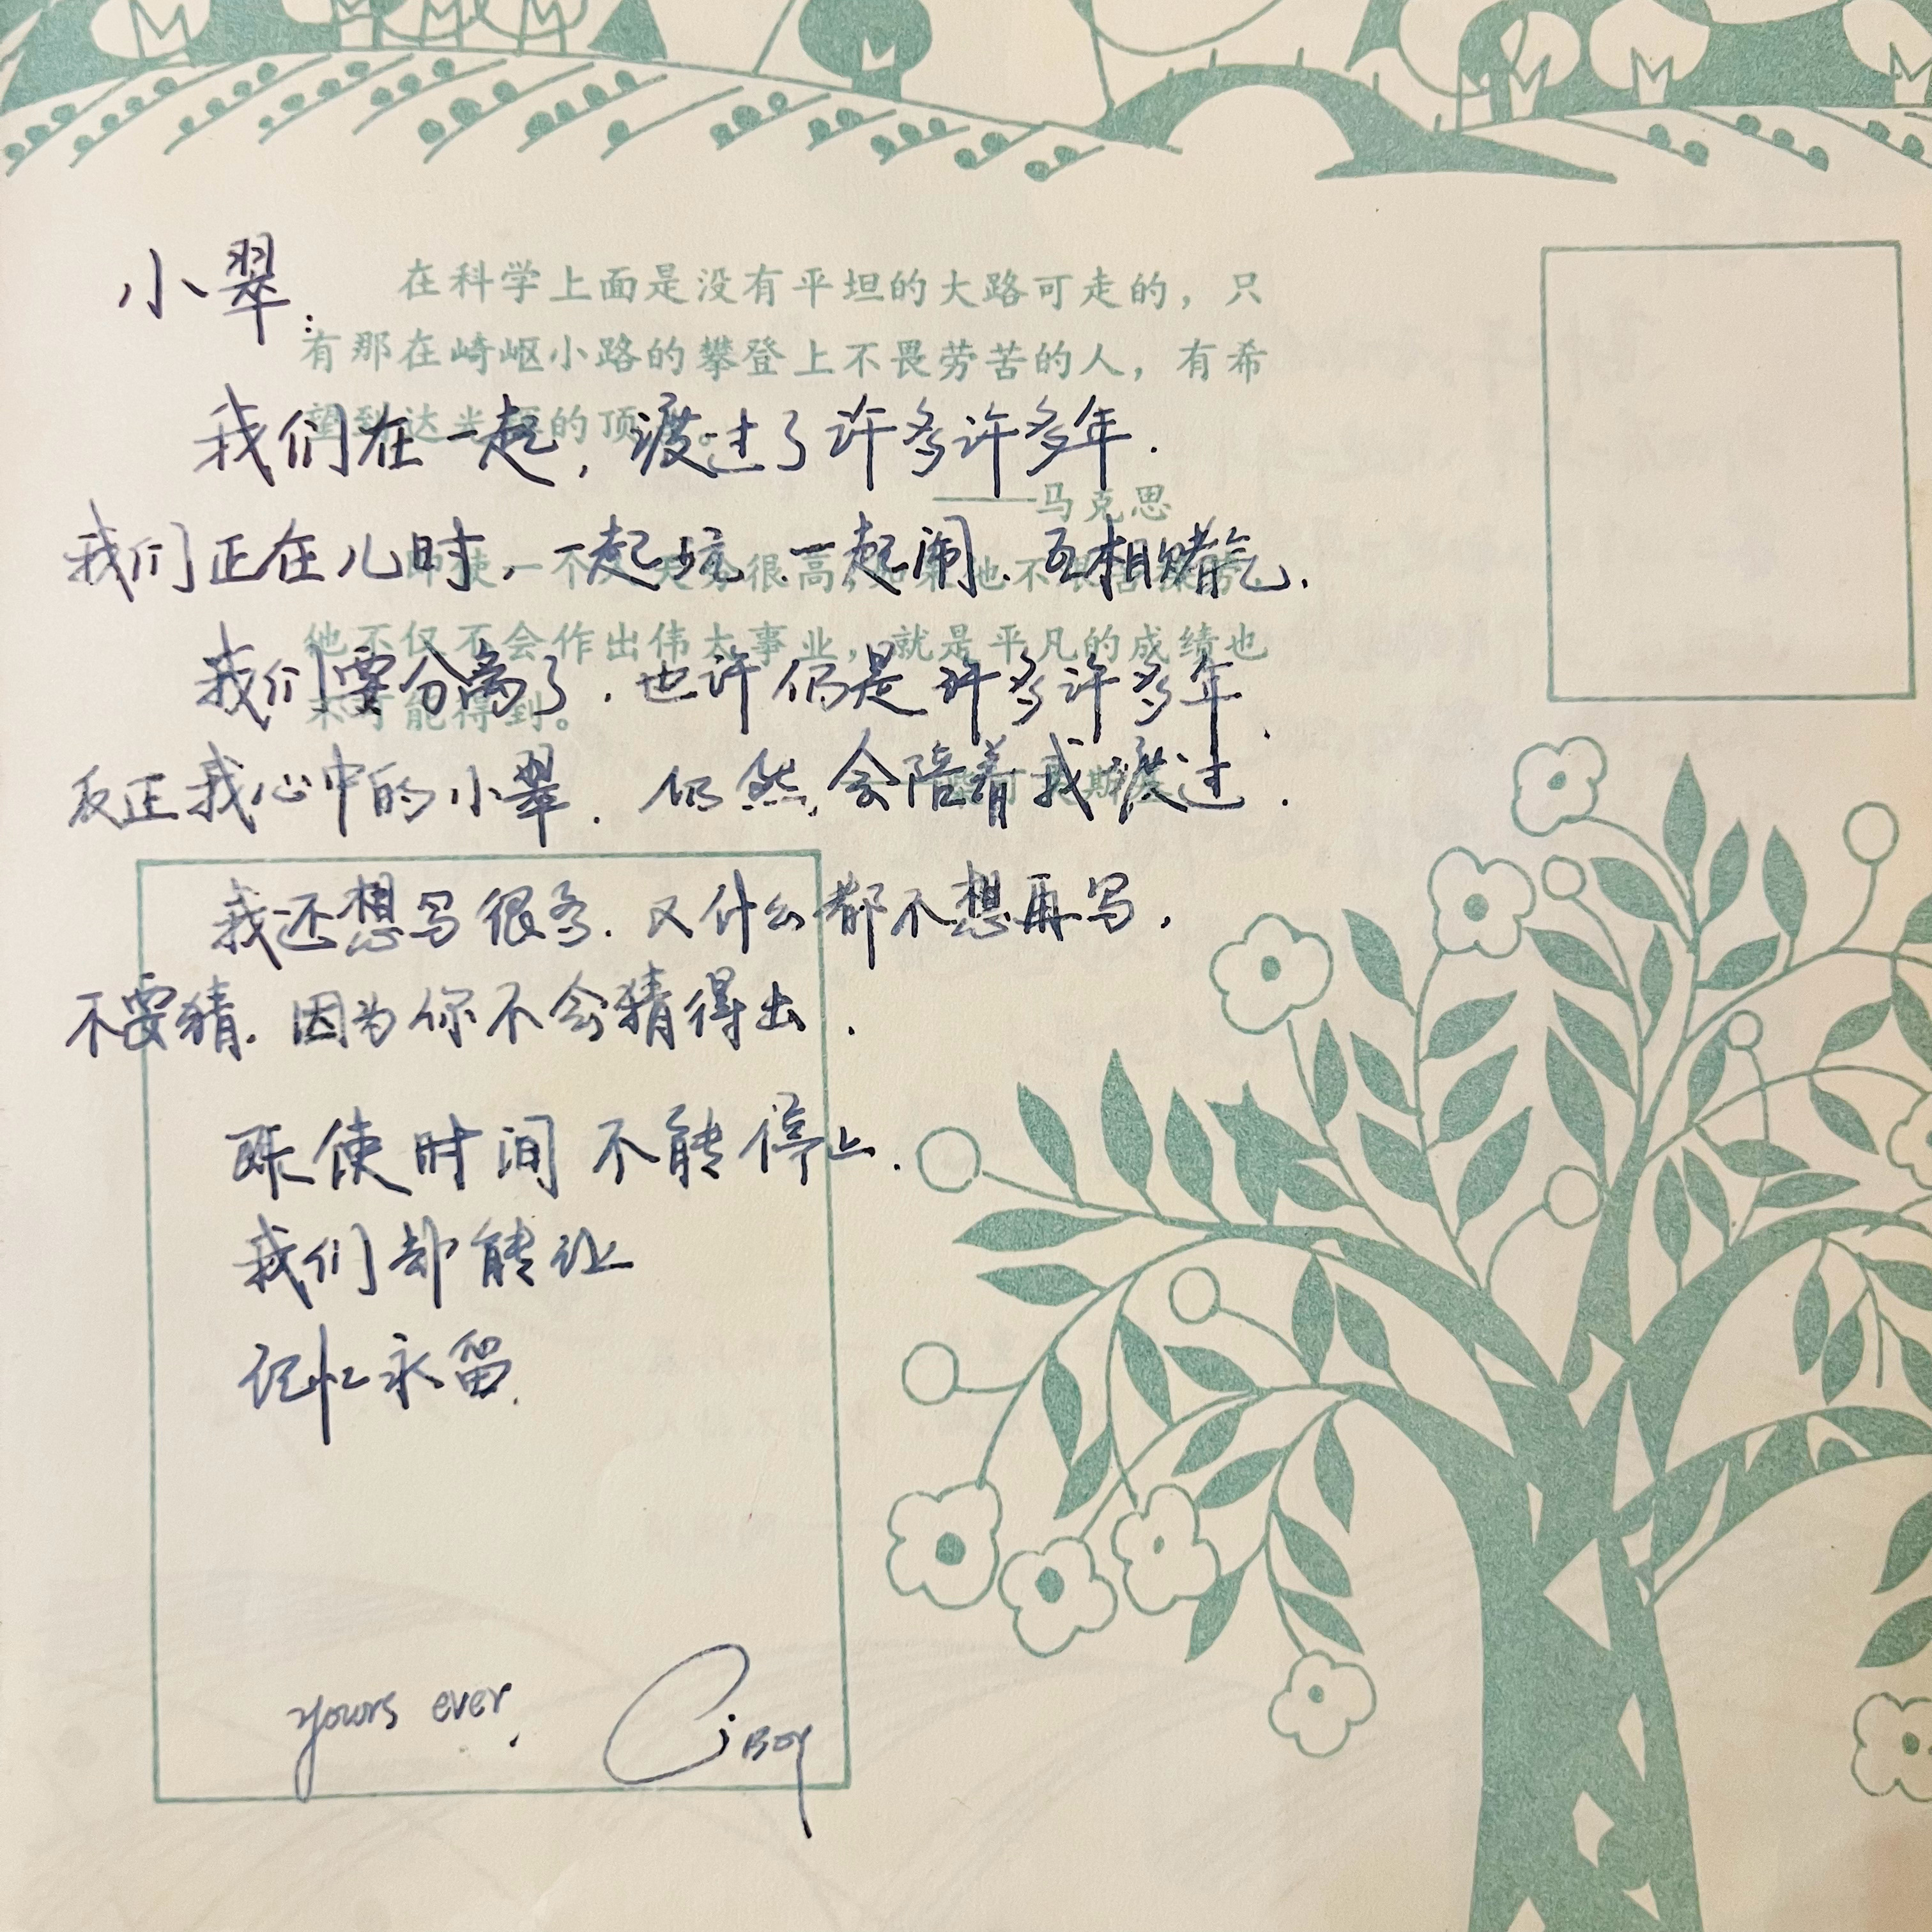 小翠:
在科学上面是没有平坦的大路可走的，只
有那在崎岖小路的攀登上不畏劳苦的人，有希
望到达光辉的顶
我们在一起，渡过了许多许多年.
——马克思
我们正在儿时，一起玩、一起闹、互相赌气.
即使一个 很高，如果他不
他不仅不会作出伟大事业，就是平凡的成绩也
我们要分离了.也许仍是许多许多年、
不可能得到。
反正我心中的小翠.仍然,会陪着我渡过.
我还想写很多.又什么都不想再写.
不要猜.因为你不会猜得出.
既使时间不能停止.
我们却能让
记忆永留.
yours ever,
Ci Boy